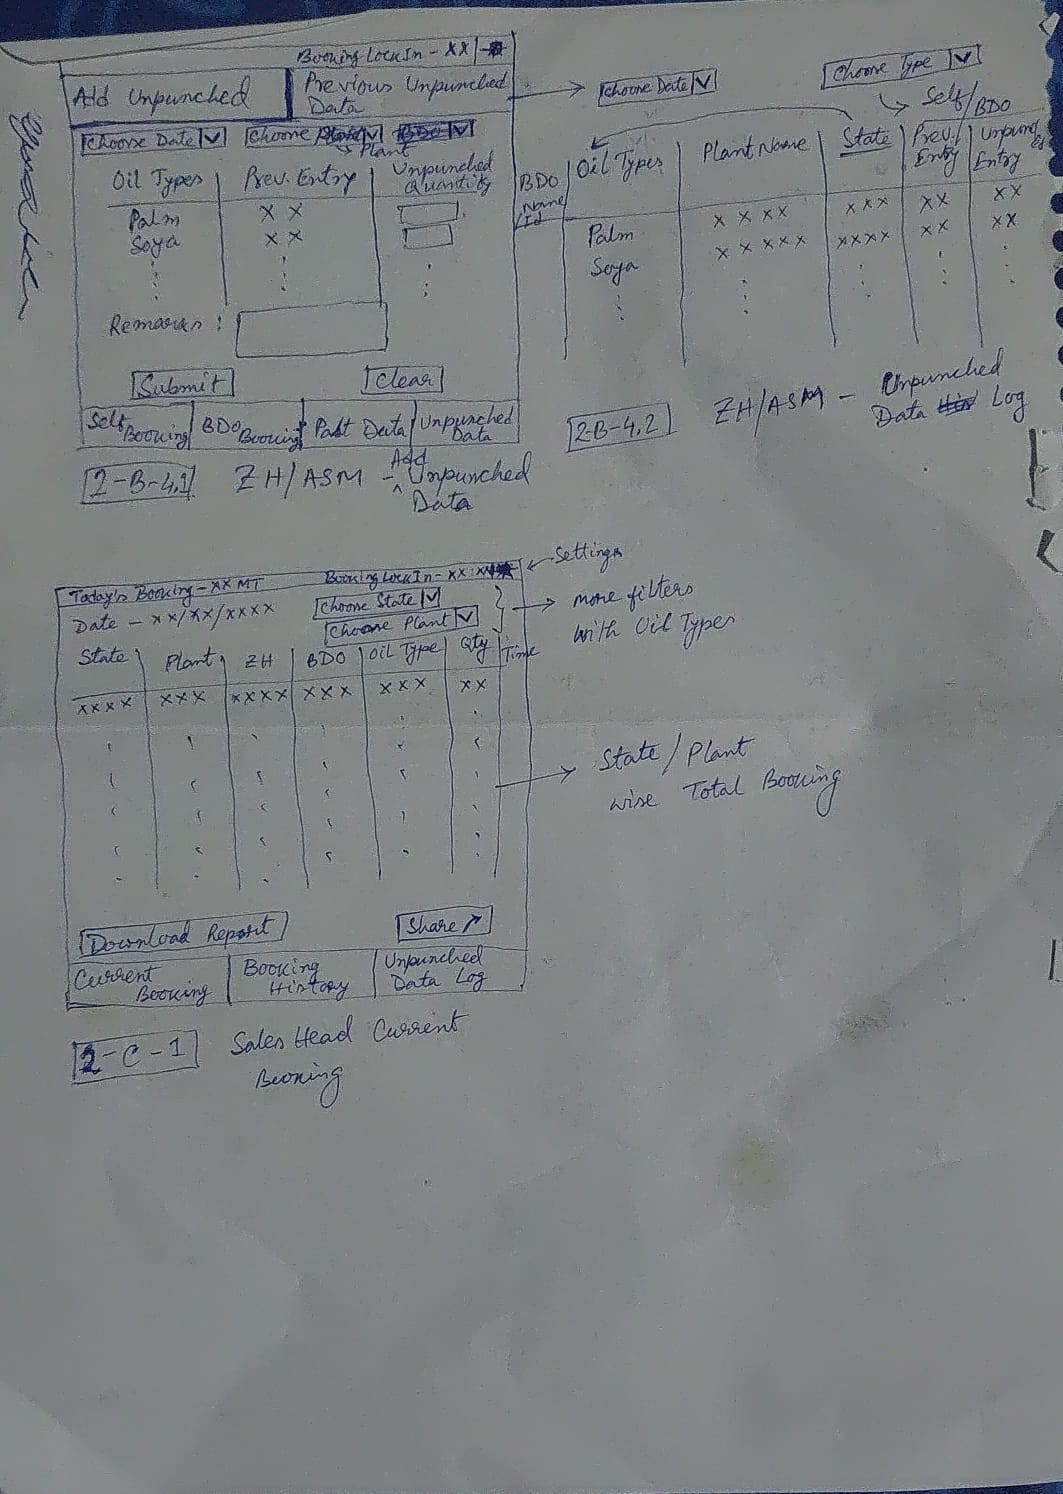 Booking Lock In - XX
Add Unpunched
Previous Unpunched
Data
Choose Date
Choose
Plant
Oil Types
Prev. Entry
Unpunched
Quantity
Palm
X X
Soya
X X
Remarks :
Submit
Clear
Self
Booking
BDO
Booking
Past Data
Unpunched
Data
2-B-4.1
ZH/ASM - Add Unpunched
Data
Choose Date
Choose Type
Self/BDO
BDO
Name
/Id
Oil Types
Plant Name
State
Prev.
Entry
Unpunched
Entry
Palm
X X X X
X X X
X X
X X
Soya
X X X X X
X X X X
X X
X X
2-B-4.2
ZH/ASM - Unpunched
Data Log
Today's Booking - XX MT
Booking Lock In - XX : XX
Settings
Date - XX/XX/XXXX
Choose State
Choose Plant
more filters
with Oil Types
State
Plant
ZH
BDO
Oil Type
Qty
Time
X X X X
X X X
X X X X
X X X
X X X
X X
State / Plant
wise Total Booking
Download Report
Share ↗
Current
Booking
Booking
History
Unpunched
Data Log
2-C-1
Sales Head Current
Booking